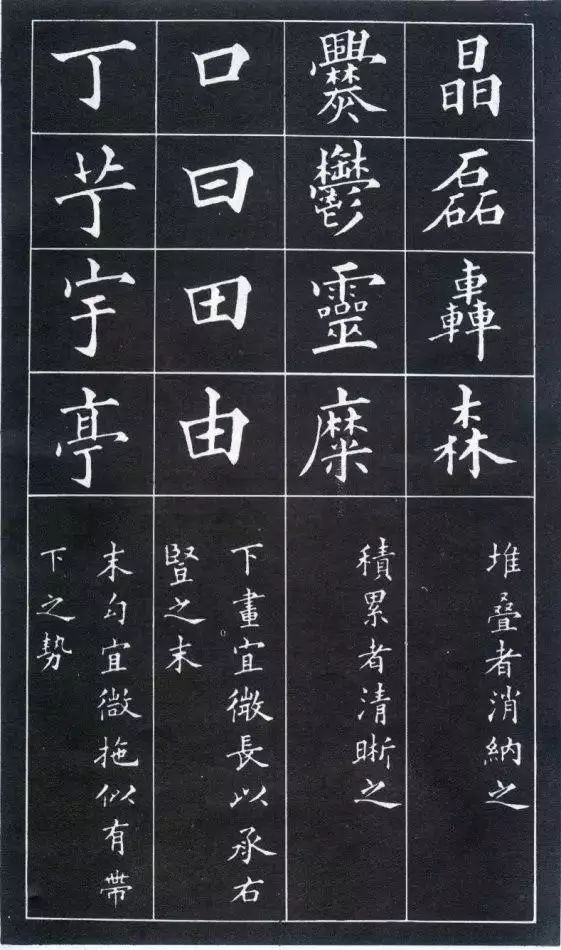 晶
磊
轟
森
堆叠者消納之
爨
鬱
靈
糜
積累者清晰之
口
曰
田
由
下畫宜微長以承右
豎之末
丁
芓
宇
亭
末勾宜微拖似有帶
下之勢